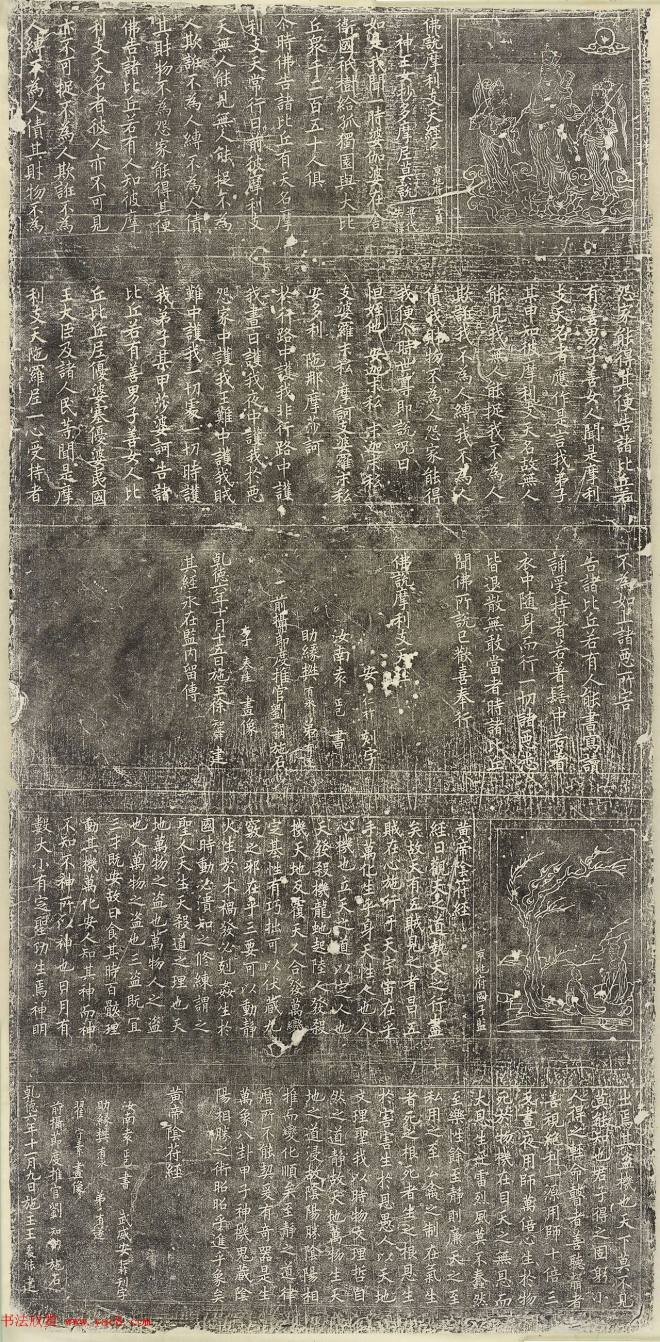 佛說摩利支天經
京兆府國子監
神王女抄多摩尼莫說
如是我聞一時婆伽婆在舍
衛國祇樹給孤獨園與大比
丘眾千二百五十人俱
尒時佛告諸比丘有天名摩
利支天常行日前彼摩利支
天無人能見無人能捉不為
人欺誑不為人縛不為人債
其財物不為怨家能得其便
佛告諸比丘若有人知彼摩
利支天名者彼人亦不可見
亦不可捉不為人欺誑不為
人縛不為人債其財物不為
怨家能得其便告諸比丘若
有善男子善女人聞是摩利
支天名者應作是言我弟子
某甲知彼摩利支天名故無人
能見我無人能捉我不為人
欺誑我不為人縛我不為人
債我財物不為人怨家能得
我便尒時世尊即說呪曰
怛姪他 安迦末私 末迦末私
支婆羅末私 摩訶支婆羅末私
安多利 陁那摩莎訶
於行路中護我非行路中護
我晝日護我夜中護我於惡
怨家中護我王難中護我賊
難中護我一切處一切時護
我弟子某甲莎婆訶告諸
比丘若有善男子善女人比
丘比丘尼優婆塞優婆夷國
王大臣及諸人民等聞是摩
利支天陁羅尼一心受持者
不為如上諸惡所害
告諸比丘若有人能書寫讀
誦受持者若著髻中若著
衣中隨身而行一切諸惡悉
皆退散無敢當者時諸比丘
聞佛所說已歡喜奉行
佛說摩利支天經
安仁祚刻字
汝南袁正己書
助緣
前攝節度推官劉知訥施石
李奉珪畫像
乾德六年十月十五日施主徐 建
其經永在監內留傳
黃帝陰符經
京兆府國子監
經曰觀天之道執天之行盡
矣故天有五賊見之者昌五
賊在心施行于天宇宙在乎
手萬化生乎身天性人也人
心機也立天之道以定人也
天發殺機龍虵起陸人發殺
機天地反覆天人合發萬變
定基性有巧拙可以伏藏九
竅之邪在乎三要可以動靜
火生於木禍發必剋姦生於
國時動必潰知之修練謂之
聖人天生天殺道之理也天
地萬物之盜也萬物人之盜
也人萬物之盜也三盜既宜
三才既安故曰食其時百骸理
動其機萬化安人知其神而神
不知不神所以神也日月有
數大小有定聖功生焉神明
出焉其盜機也天下莫不見
莫能知也君子得之固躬小
人得之輕命瞽者善聽聾者
善視絕利一源用師十倍三
反晝夜用師萬倍心生於物
死於物機在目天之無恩而
大恩生迅雷烈風莫不蠢然
至樂性餘至靜則廉天之至
私用之至公禽之制在氣生
者死之根死者生之根恩生
於害害生於恩愚人以天地
文理聖我以時物文理哲自
然之道靜故天地萬物生天
地之道浸故陰陽勝陰陽相
推而變化順矣至靜之道律
曆所不能契爰有奇器是生
萬象八卦甲子神機鬼藏陰
陽相勝之術昭昭乎進乎象矣
黃帝陰符經
汝南袁正己書 武威安仁祚刊字
助緣
翟守素畫像
前攝節度推官劉知訥施石
乾德六年十一月九日施主王 建
书法欣赏 www.yac8.com